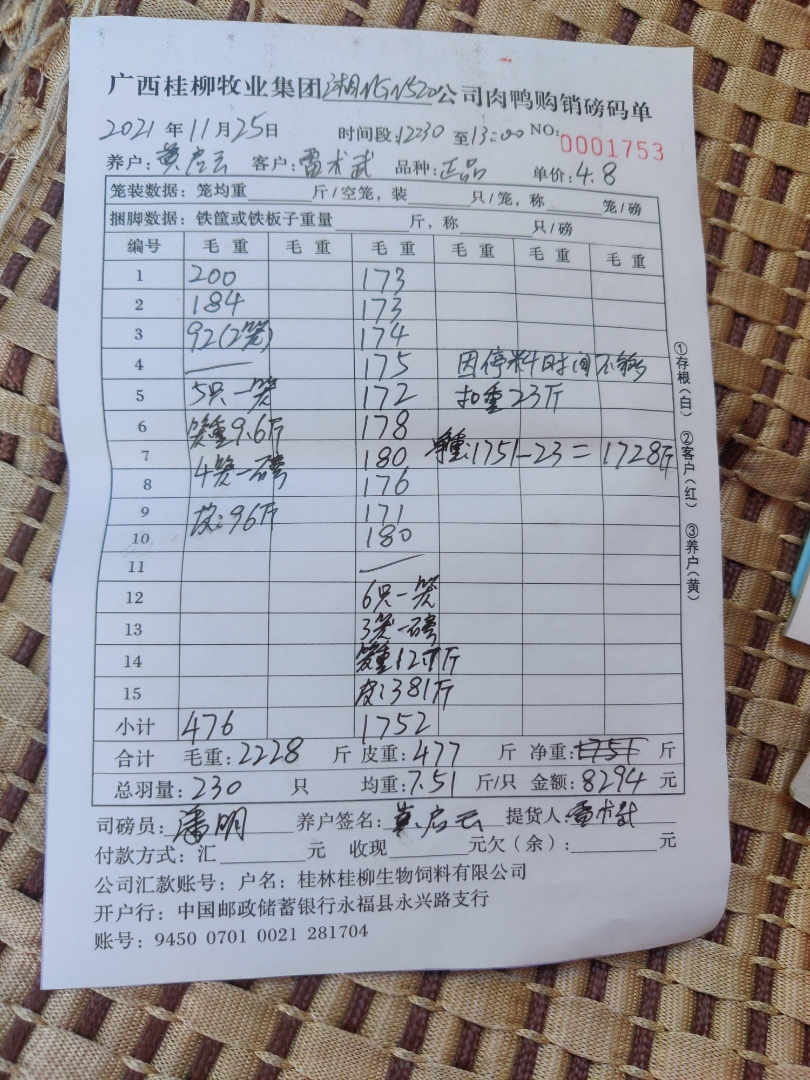 广西桂柳牧业集团 公司肉鸭购销磅码单
2021年11月25日 时间段:12:30至13:00 NO:0001753
养户:莫启云 客户:雷术武 品种:正品 单价:4.8
笼装数据: 笼均重 斤/空笼,装 只/笼,称 笼/磅
捆脚数据: 铁筐或铁板子重量 斤,称 只/磅
编号 毛重 毛重 毛重 毛重 毛重 毛重
1 200 173
2 184 173
3 92(2笼) 174
4 — 175 因停料时间不够
5 5只一笼 172 扣重23斤
6 笼重9.6斤 178
7 4笼一磅 180 净重:1751-23=1728斤
8 176
9 皮:96斤 171
10 180
11 —
12 6只一笼
13 3笼一磅
14 笼重:12.7斤
15 皮:381斤
小计 476 1752
合计 毛重:2228斤 皮重:477斤 净重:1751斤
总羽量:230只 均重:7.51斤/只 金额:8294元
司磅员:潘明 养户签名:莫启云 提货人:雷术武
付款方式:汇 元 收现 元欠(余): 元
公司汇款账号:户名:桂林桂柳生物饲料有限公司
开户行:中国邮政储蓄银行永福县永兴路支行
账号:9450 0701 0021 281704
①存根(白) ②客户(红) ③养户(黄)